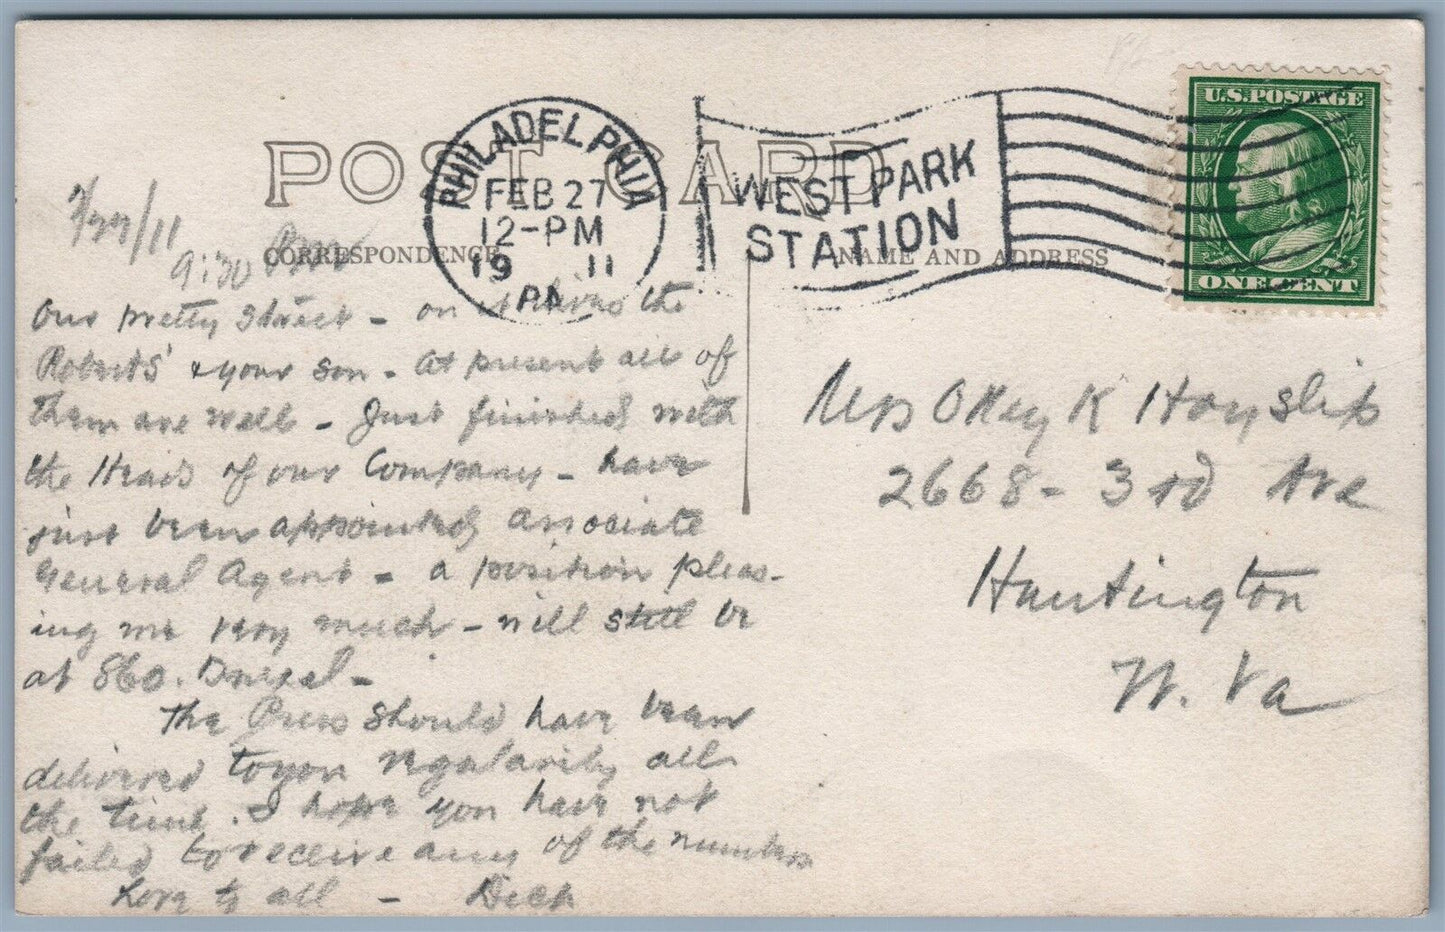 POST CARD
CORRESPONDENCE
NAME AND ADDRESS
PHILADELPHIA
FEB 27
12-PM
19 11
PA
WEST PARK
STATION
U.S. POSTAGE
ONE CENT
2/27/11
9:30
Our pretty street - on it lives the
Roberts' & your son - At present all of
them are well - Just finished with
the Heads of our Company - have
just been appointed Associate
General Agent - a position pleas-
ing me very much - will still be
at 860. Drexel -
The Press should have been
delivered to you regularly all
the time. I hope you have not
failed to receive any of the numbers
Love to all - Dick
Mrs Okey K Hayslip
2668 - 3rd Ave
Huntington
W. Va